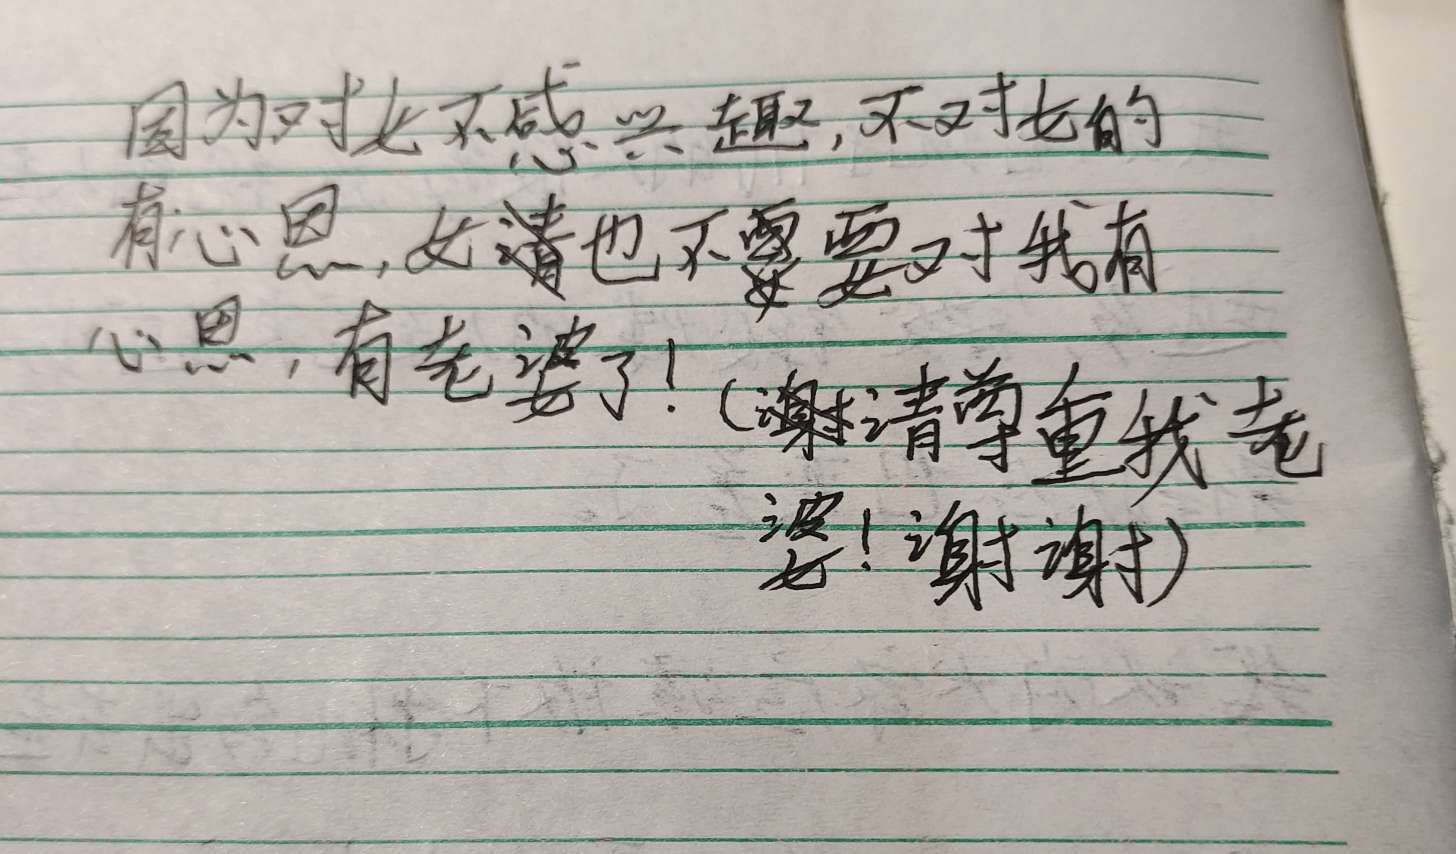 因为对女不感兴趣,不对女的
有心思,女请也不要对我有
心思,有老婆了!
(请尊重我老
婆!谢谢)